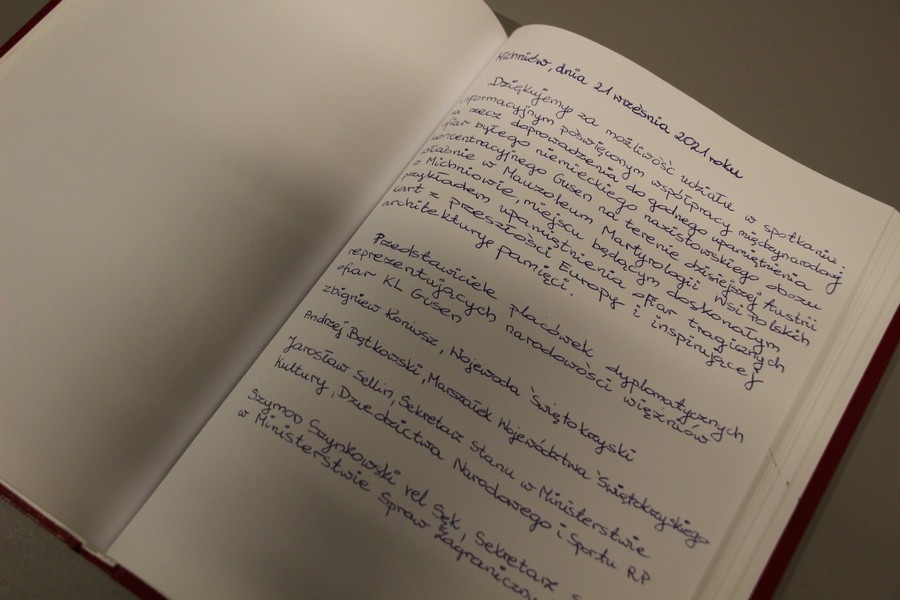 Michniów, dnia 21 września 2021 roku
Dziękujemy za możliwość udziału w spotkaniu
informacyjnym poświęconym współpracy międzynarodowej
na rzecz doprowadzenia do godnego upamiętnienia
ofiar byłego niemieckiego nazistowskiego obozu
koncentracyjnego Gusen na terenie dzisiejszej Austrii
właśnie w Mauzoleum Martyrologii Wsi Polskich
w Michniowie, miejscu będącym doskonałym
przykładem upamiętnienia ofiar tragicznych
kart z przeszłości Europy i inspirującej
architektury pamięci.
Przedstawiciele placówek dyplomatycznych
reprezentujących narodowości więźniów
ofiar KL Gusen
Zbigniew Koniusz, Wojewoda Świętokrzyski
Andrzej Bętkowski, Marszałek Województwa Świętokrzyskiego
Jarosław Sellin, Sekretarz stanu w Ministerstwie
Kultury, Dziedzictwa Narodowego i Sportu RP
Szymon Szynkowski vel Sęk, Sekretarz
w Ministerstwie Spraw